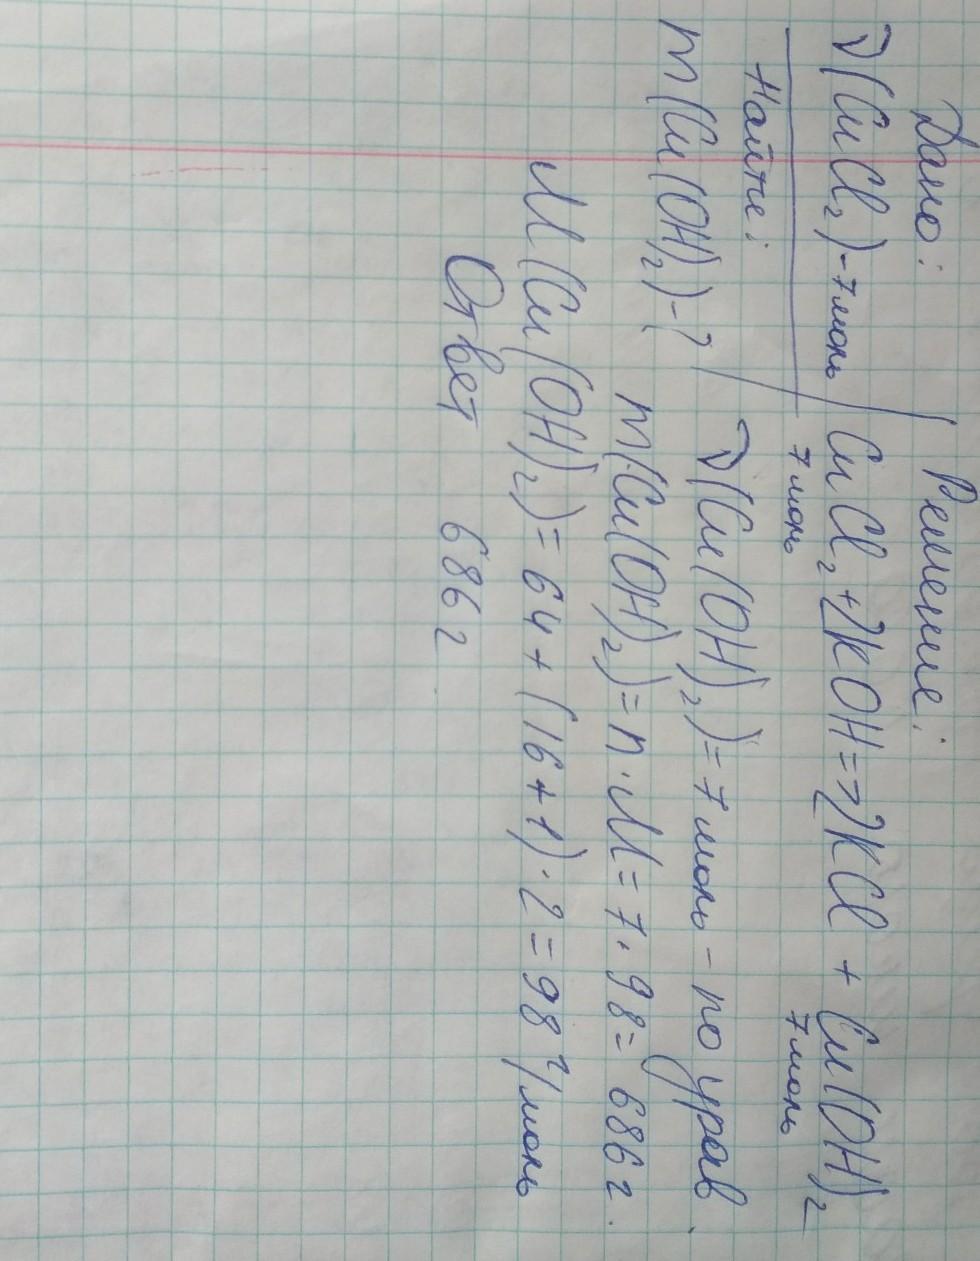 Дано:
ν(CuCl₂)-7моль
Найти:
m(Cu(OH)₂)-?
Решение:
CuCl₂+2KOH=2KCl + Cu(OH)₂
7моль 7моль
ν(Cu(OH)₂)=7моль-по урав.
m(Cu(OH)₂)=n·M=7·98=686г.
M(Cu(OH)₂)=64+(16+1)·2=98г/моль
Ответ 686г